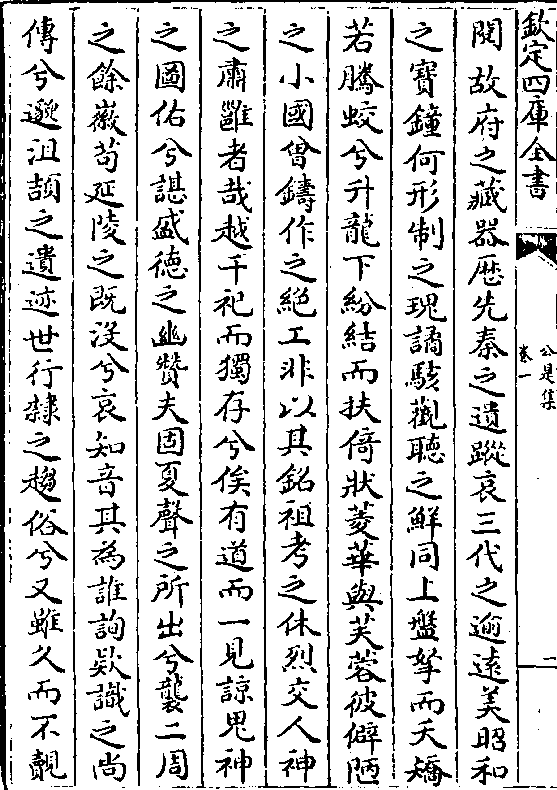 欽定四庫全書
公是集
卷一
一
閱故府之藏器歴先秦之遺蹤哀三代之逾遠美昭和
之寳鐘何形制之瑰譎駭觀聽之鮮同上盤拏而夭矯
若騰蛟兮升龍下紛結而扶倚狀菱華與芙蓉彼僻陋
之小國曾鑄作之絶工非以其銘祖考之休烈交人神
之肅雝者哉越千祀而獨存兮俟有道而一見諒鬼神
之圖佑兮諶盛徳之幽贊夫固夏聲之所出兮襲二周
之餘徽苟延陵之既没兮哀知音其為誰詢欵識之尚
傳兮邈沮頡之遺迹世行隸之趨俗兮又雖久而不覿